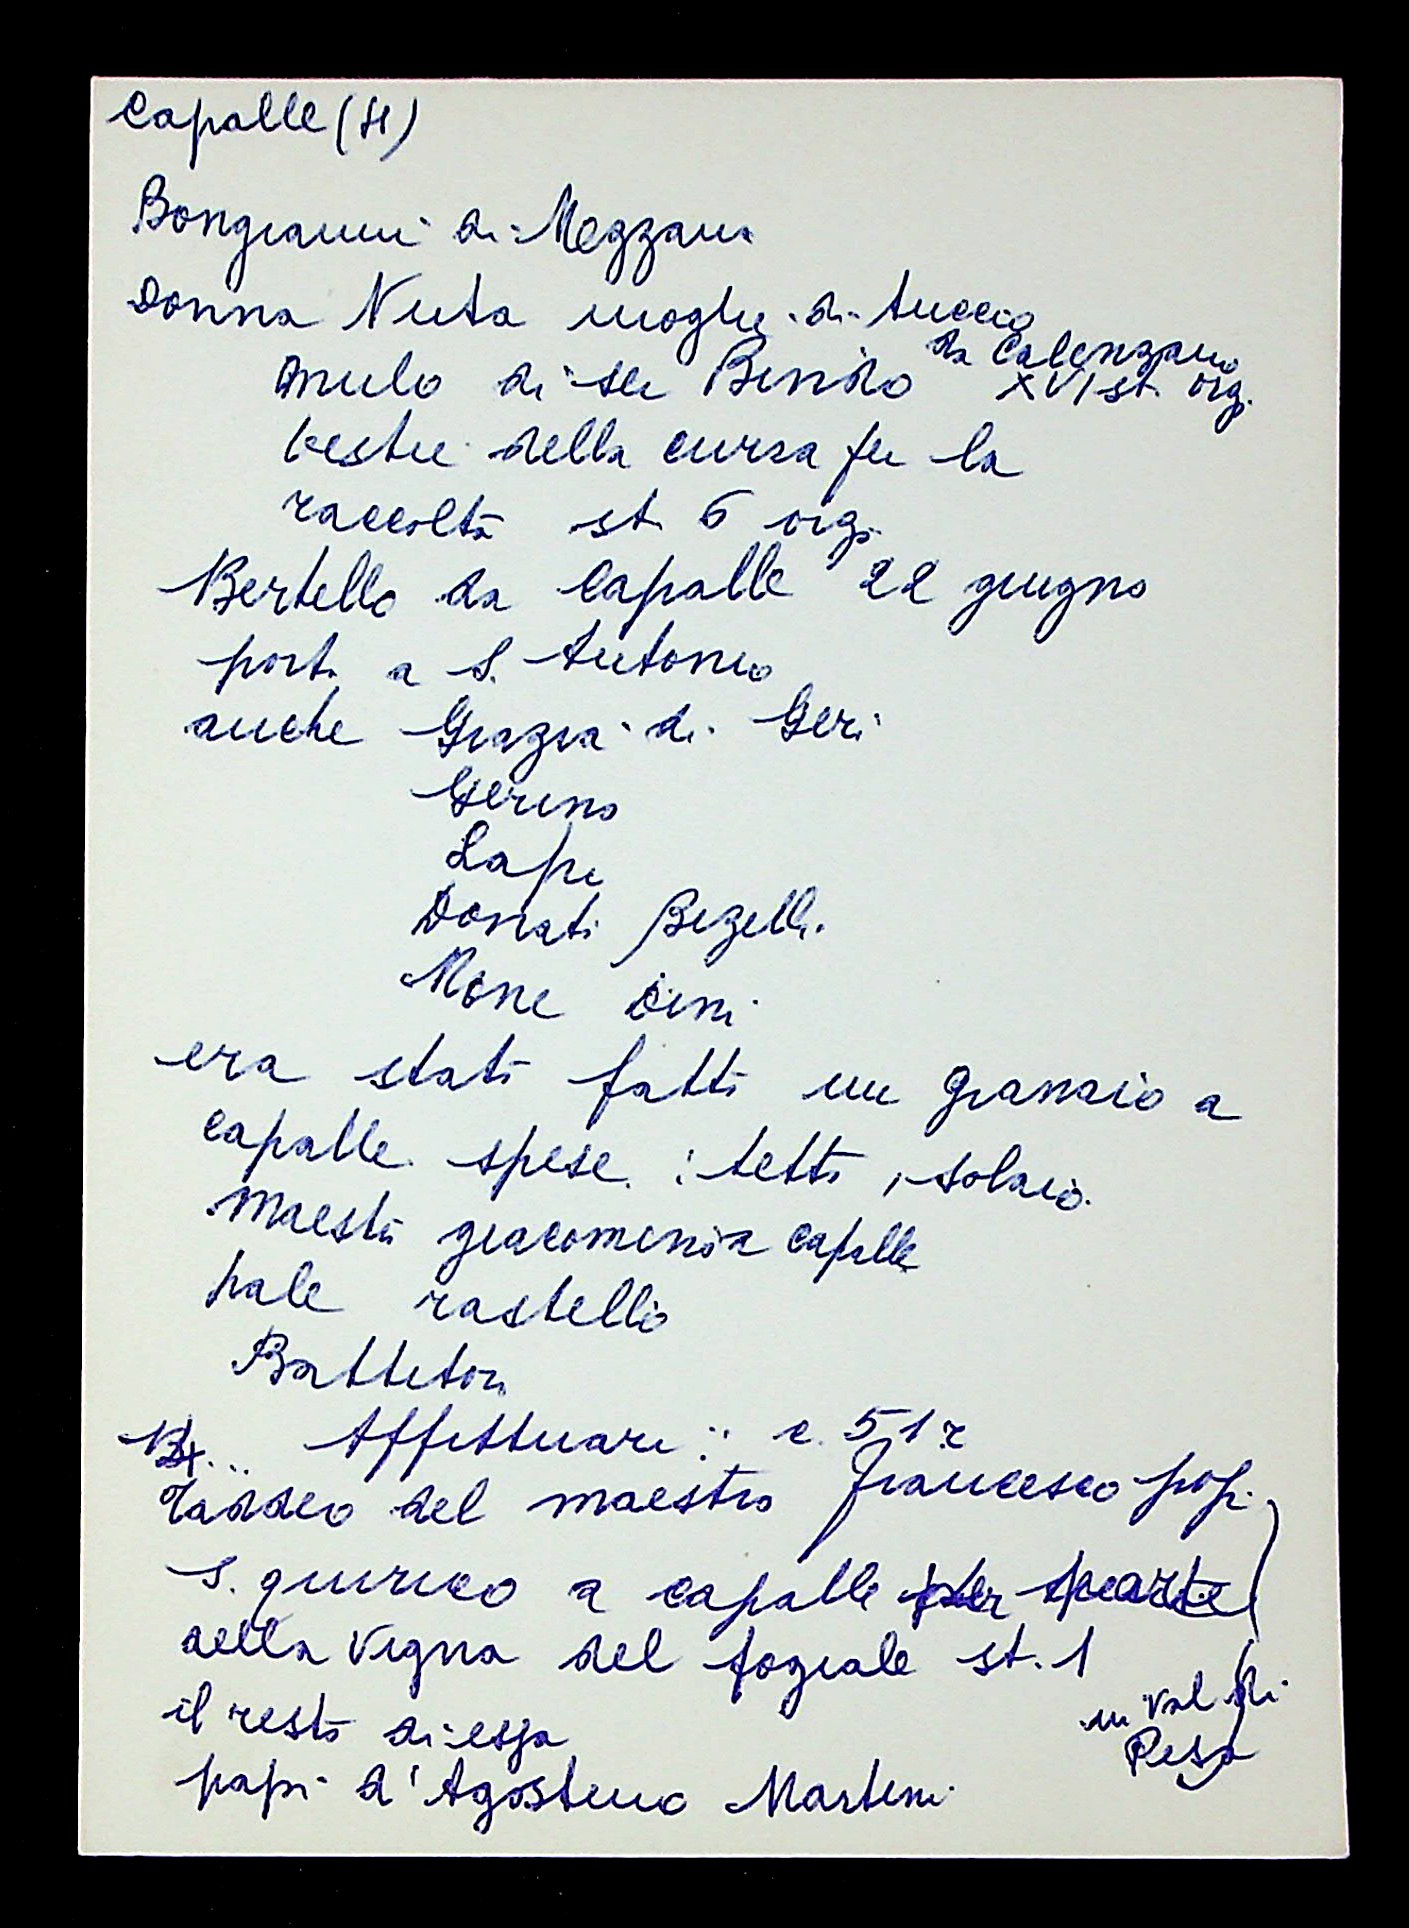 Capalle (H)
Bongianni di Mezzana
Donna Nuta moglie di tuccio
da Calenzano
Mulo di ser Bindo XVI st. org.
bestie della cursa per la
raccolta st. 6 orgi
Bertello da Capalle 22 giugno
portò a S. Antonio
anche Grazia di Geri
Gerino
Lapi
Donati Bezelli
Mone Dini
era stato fatto un granaio a
capalle spese : tetto, solaio
Maestro giacomino a capalle
pale rastello
Battitori
Affittuari : c. 51 r
Taddeo del maestro Francesco popi
S. quirico a capalle per parte
della vigna del fogiale st. 1
in Val di
Pesa
il resto di essa
papi d'Agostino Martini